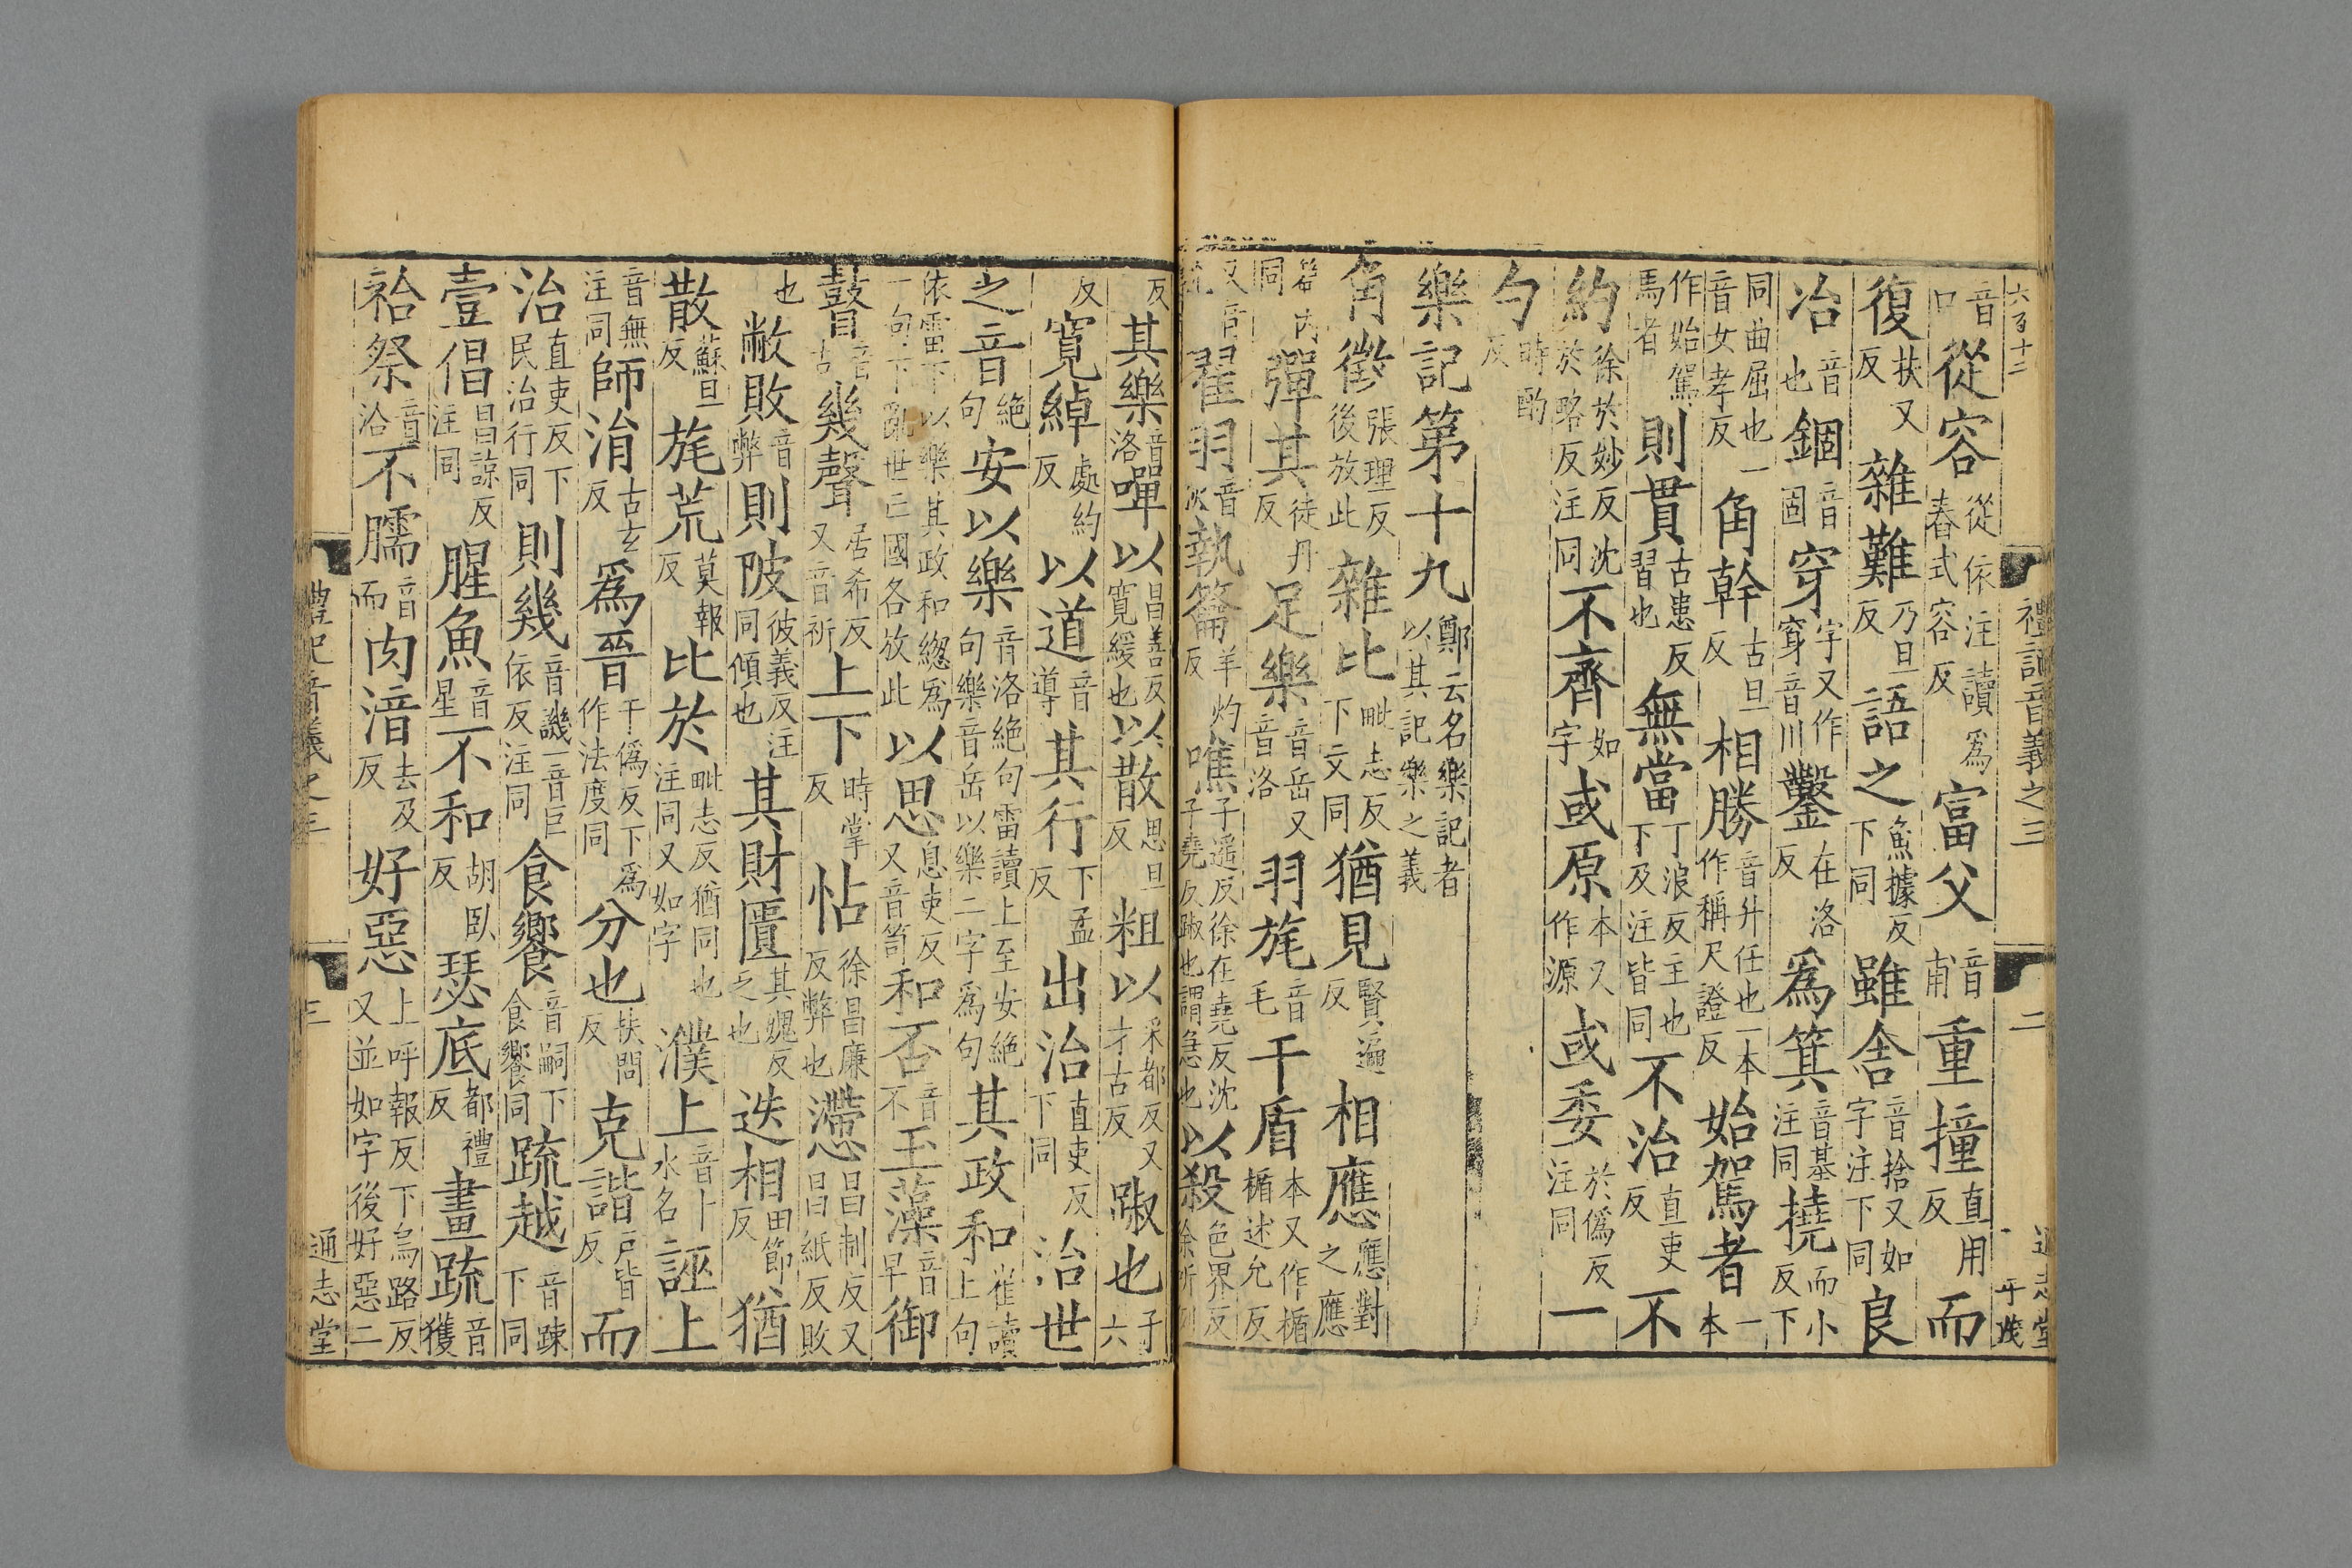 六百十二
禮記音義之三 二 通志堂
音口從容從依注讀爲舂式容反富父音甫重撞直用反而
復扶又反雜難乃旦反語之魚據反下同雖舍音捨又如字注下同良
冶音也錮音固穿字又作窂音川鑿在洛反爲箕音基注同撓而小反下
同曲屈也一音女孝反角幹古旦反相勝音升任也一本作稱尺證反始駕者一本
作始駕馬者則貫古患反習也無當丁浪反主也下及注皆同不治直吏反不
約徐於妙反沈於略反注同不齊如字或原本又作源或委於僞反注同一
勺時酌反
樂記第十九鄭云名樂記者以其記樂之義
角徵張理反後放此雜比毗志反下文同猶見賢遍反相應應對之應
篇内同彈其徒丹反足樂音岳又音洛羽旄音毛干盾本又作楯述允反
又音允翟羽音狄執籥羊灼反噍子遥反徐在堯反沈子堯反踧也謂急也以殺色界反徐所例
反其樂音洛嘽以昌善反寛緩也以散思旦反粗以采都反又才古反踧也子六
反寛綽處約反以道音導其行下孟反出治直吏反下同治世
之音絶句安以樂音洛絶句雷讀上至安絶句樂音岳以樂二字爲句其政和崔讀上句
依雷下以樂其政和緫爲一句下亂世亡國各放此以思息吏反又音笥和否音不玉藻音早御
瞽音古幾聲居希反又音祈上下時掌反怗徐昌廉反弊也懘昌制反又昌紙反敗
也敝敗音弊則陂彼義反注同傾也其財匱其媿反乏也迭相田節反猶
散蘇旦反旄荒莫報反比於毗志反猶同也注同又如字濮上音卜水名誣上
音無注同師涓古玄反爲晉于僞反下爲作法度同分也扶問反克諧戸皆反而
治直吏反下民治行同則幾音譏一音巨依反注同食饗音嗣下食饗同疏越音踈下同
壹倡昌諒反注同腥魚音星不和胡臥反瑟底都禮反畫疏音獲
祫祭音洽不臑音而肉湆去及反好惡上呼報反下烏路反又並如字後好惡二
禮記音義之三 三 通志堂